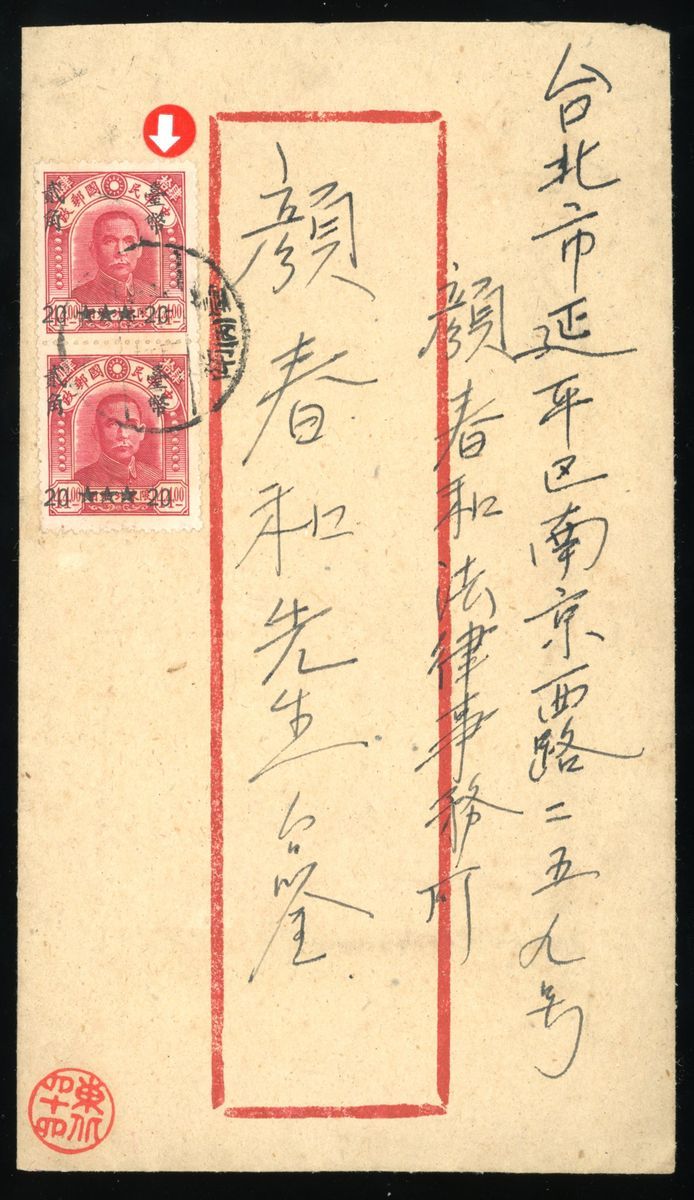 台北市延平区南京西路二五九号
顔春和法律事務所
顔春和先生 台鑒
中華民國郵政
臺幣
貳角
20 ★★★ 20
中華民國郵政
臺幣
貳角
20 ★★★ 20